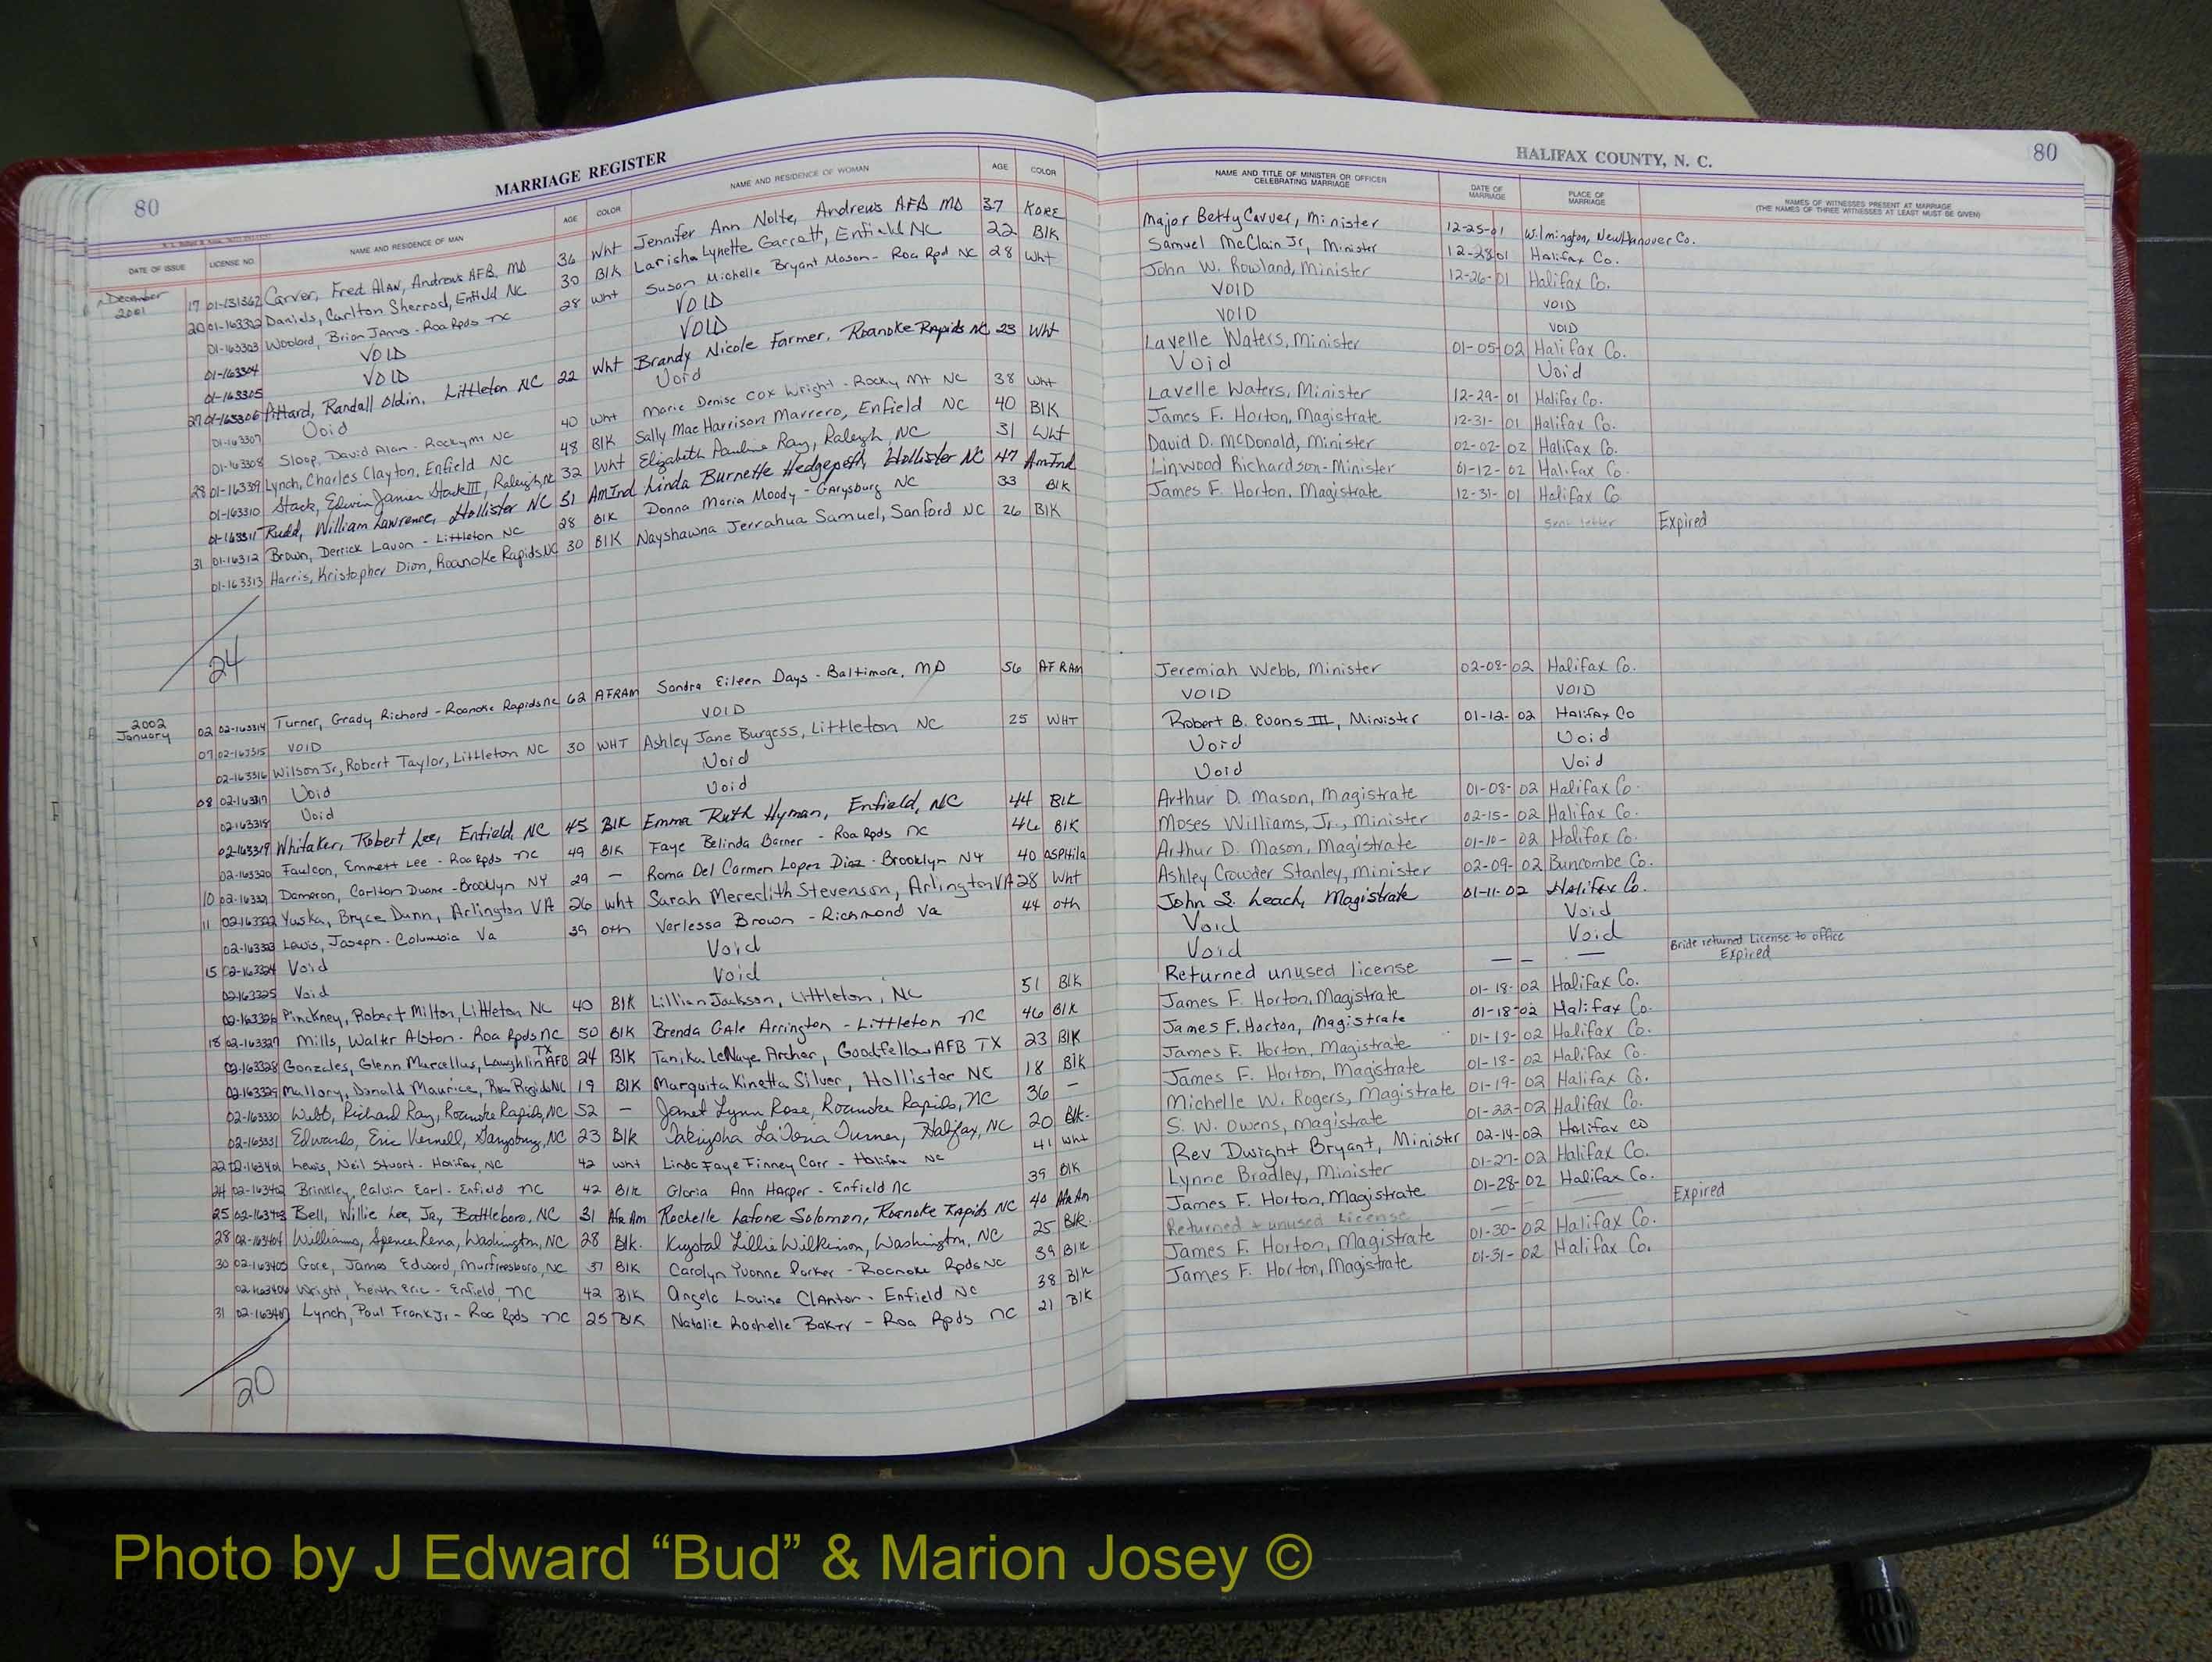 80
MARRIAGE REGISTER
DATE OF ISSUE LICENSE NO. NAME AND RESIDENCE OF MAN AGE COLOR NAME AND RESIDENCE OF WOMAN AGE COLOR
HALIFAX COUNTY, N. C. 80
NAME AND TITLE OF MINISTER OR OFFICER CELEBRATING MARRIAGE DATE OF MARRIAGE PLACE OF MARRIAGE NAMES OF WITNESSES PRESENT AT MARRIAGE (THE NAMES OF THREE WITNESSES AT LEAST MUST BE GIVEN)
December 2001
17 01-131362 Carver, Fred Alan, Andrews AFB, MD 36 Wht Jennifer Ann Nolte, Andrews AFB MD 37 KORE Major Betty Carver, Minister 12-25-01 Wilmington, New Hanover Co.
20 01-163302 Daniels, Carlton Sherrod, Enfield NC 30 Blk Larisha Lynette Garrett, Enfield NC 22 Blk Samuel McClain Jr, Minister 12-28-01 Halifax Co.
01-163303 Woolard, Brian James - Roa Rpds NC 28 Wht Susan Michelle Bryant Mason - Roa Rpd NC 28 Wht John W. Rowland, Minister 12-26-01 Halifax Co.
01-163304 VOID VOID VOID VOID
01-163305 VOID VOID VOID VOID
27 01-163306 Pittard, Randall Oldin, Littleton NC 22 Wht Brandy Nicole Farmer, Roanoke Rapids NC 23 Wht Lavelle Waters, Minister 01-05-02 Halifax Co.
01-163307 Void Void Void Void
01-163308 Sloop, David Alan - Rocky Mt NC 40 Wht Marie Denise Cox Wright - Rocky Mt NC 38 Wht Lavelle Waters, Minister 12-29-01 Halifax Co.
28 01-163309 Lynch, Charles Clayton, Enfield NC 48 Blk Sally Mae Harrison Marrero, Enfield NC 40 Blk James F. Horton, Magistrate 12-31-01 Halifax Co.
01-163310 Stack, Edwin James Stack III, Raleigh, NC 32 Wht Elizabeth Pauline Ray, Raleigh, NC 31 Wht David D. McDonald, Minister 02-02-02 Halifax Co.
01-163311 Rudd, William Lawrence, Hollister NC 51 AmInd Linda Burnette Hedgepeth, Hollister NC 47 AmInd Linwood Richardson-Minister 01-12-02 Halifax Co.
31 01-16312 Brown, Derrick Lavon - Littleton NC 28 Blk Donna Maria Moody - Garysburg NC 33 Blk James F. Horton, Magistrate 12-31-01 Halifax Co
01-163313 Harris, Kristopher Dion, Roanoke Rapids NC 30 Blk Nayshawna Jerrahua Samuel, Sanford NC 26 Blk sent letter Expired
24
2002 January
02 02-163314 Turner, Grady Richard - Roanoke Rapids NC 62 AFRAM Sandra Eileen Days - Baltimore, MD 56 AFRAM Jeremiah Webb, Minister 02-08-02 Halifax Co.
07 02-163315 VOID VOID VOID VOID
02-163316 Wilson Jr, Robert Taylor, Littleton NC 30 WHT Ashley Jane Burgess, Littleton NC 25 WHT Robert B. Evans III, Minister 01-12-02 Halifax Co
08 02-163317 Void Void Void Void
02-163318 Void Void Void Void
02-163319 Whitaker, Robert Lee, Enfield, NC 45 Blk Emma Ruth Hyman, Enfield, NC 44 Blk Arthur D. Mason, Magistrate 01-08-02 Halifax Co.
02-163320 Faulcon, Emmett Lee - Roa Rpds NC 49 Blk Faye Belinda Barner - Roa Rpds NC 46 Blk Moses Williams, Jr., Minister 02-15-02 Halifax Co.
10 02-16332 Dameron, Carlton Duane - Brooklyn NY 29 — Roma Del Carmen Lopez Diaz - Brooklyn NY 40 Arthur D. Mason, Magistrate 01-10-02 Halifax Co.
11 02-163322 Yuska, Bryce Dunn, Arlington VA 26 Wht Sarah Meredith Stevenson, Arlington VA 28 Wht Ashley Crowder Stanley, Minister 02-09-02 Buncombe Co.
02-163323 Lewis, Joseph - Columbia Va 39 Oth Verlessa Brown - Richmond Va 44 Oth John L. Leach, Magistrate 01-11-02 Halifax Co.
15 02-163324 Void Void Void Void
02-163325 Void Void Void Void
02-163326 Pinckney, Robert Milton, Littleton NC 40 Blk Lillian Jackson, Littleton, NC 51 Blk Returned unused license — — — Bride returned License to office Expired
18 02-163327 Mills, Walter Alston - Roa Rpds NC 50 Blk Brenda Gale Arrington - Littleton NC 46 Blk James F. Horton, Magistrate 01-18-02 Halifax Co.
02-163328 Gonzales, Glenn Marcellus, Laughlin AFB TX 24 Blk Tanika LeNaye Archer, Goodfellow AFB TX 23 Blk James F. Horton, Magistrate 01-18-02 Halifax Co.
02-163329 Mallory, Donald Maurice, Roa Rapids NC 19 Blk Marquita Kinetta Silver, Hollister NC 18 Blk James F. Horton, Magistrate 01-18-02 Halifax Co.
02-163330 Webb, Richard Ray, Roanoke Rapids, NC 52 — Janet Lynn Rose, Roanoke Rapids, NC 36 — James F. Horton, Magistrate 01-18-02 Halifax Co.
02-163331 Edwards, Eric Vernell, Garysburg, NC 23 Blk Takiysha LaToria Turner, Halifax, NC 20 Blk. Michelle W. Rogers, Magistrate 01-19-02 Halifax Co.
22 02-163401 Lewis, Neil Stuart - Halifax, NC 42 Wht Linda Faye Finney Carr - Halifax NC 41 Wht S. W. Owens, Magistrate 01-22-02 Halifax Co.
24 02-163402 Brinkley, Calvin Earl - Enfield NC 42 Blk Gloria Ann Harper - Enfield NC 39 Blk Rev Dwight Bryant, Minister 02-14-02 Halifax Co
25 02-163403 Bell, Willie Lee, Jr, Battleboro, NC 31 Afr Am Rochelle Lafone Solomon, Roanoke Rapids NC 40 Afr Am Lynne Bradley, Minister 01-27-02 Halifax Co.
28 02-163404 Williams, Spencer Rena, Washington, NC 28 Blk. Krystal Lillie Wilkinson, Washington, NC 25 Blk. James F. Horton, Magistrate 01-28-02 Halifax Co.
30 02-163405 Gore, James Edward, Murfreesboro, NC 37 Blk Carolyn Yvonne Parker - Roanoke Rpds NC 39 Blk Returned & unused license — — Expired
02-163406 Wright, Keith Eric - Enfield, NC 42 Blk Angela Louise Clanton - Enfield NC 38 Blk James F. Horton, Magistrate 01-30-02 Halifax Co.
31 02-163407 Lynch, Paul Frank Jr - Roa Rpds NC 25 Blk Natalie Rochelle Baker - Roa Rpds NC 21 Blk James F. Horton, Magistrate 01-31-02 Halifax Co.
20
Photo by J Edward “Bud” & Marion Josey ©